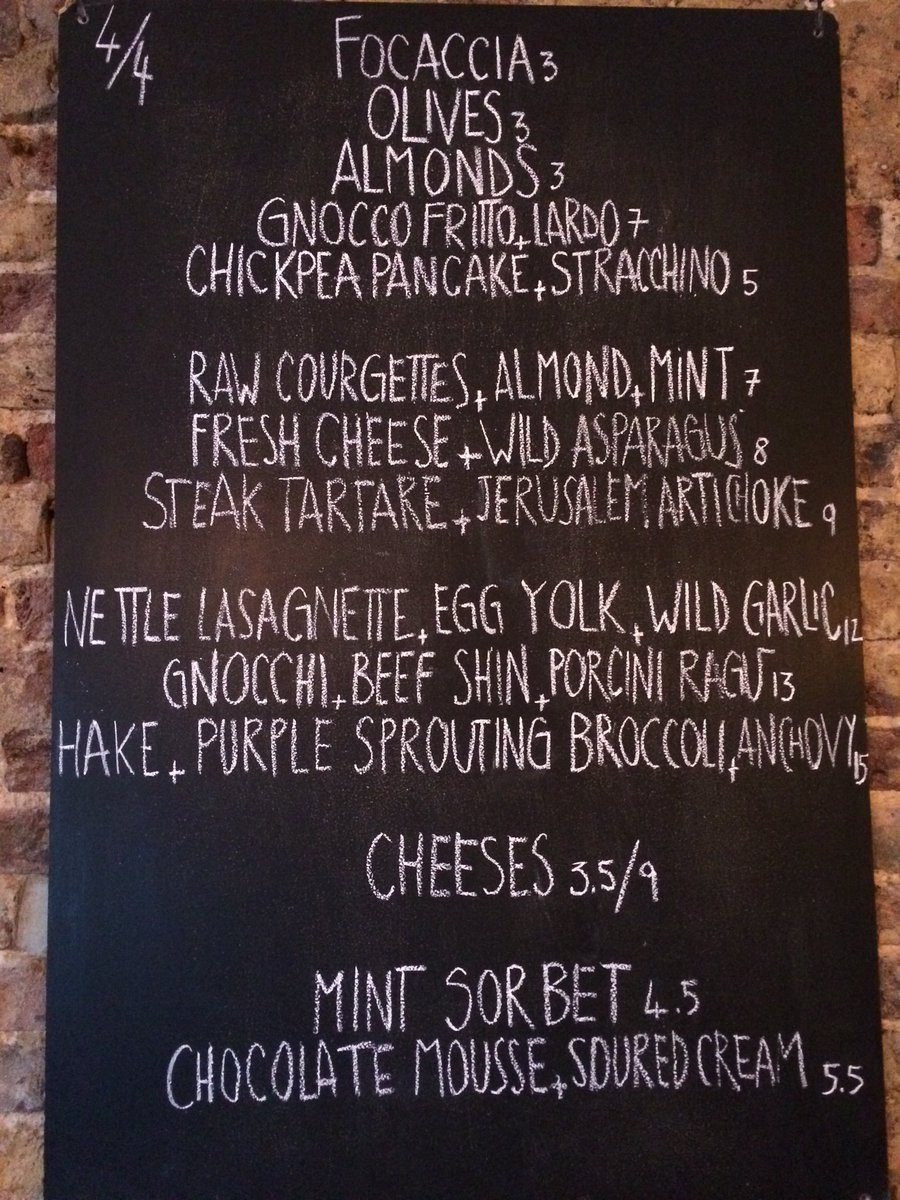 4/4
FOCACCIA 3
OLIVES 3
ALMONDS 3
GNOCCO FRITTO + LARDO 7
CHICKPEA PANCAKE + STRACCHINO 5
RAW COURGETTES + ALMOND + MINT 7
FRESH CHEESE + WILD ASPARAGUS 8
STEAK TARTARE + JERUSALEM ARTICHOKE 9
NETTLE LASAGNETTE + EGG YOLK + WILD GARLIC 12
GNOCCHI + BEEF SHIN + PORCINI RAGU 13
HAKE + PURPLE SPROUTING BROCCOLI + ANCHOVY 15
CHEESES 3.5/9
MINT SORBET 4.5
CHOCOLATE MOUSSE + SOURED CREAM 5.5